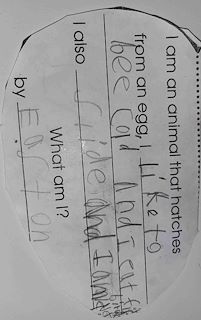 I am an animal that hatches
from an egg, I Like to
bee cold and I eat fi
I also Slide and I am
What am I?
by Easton